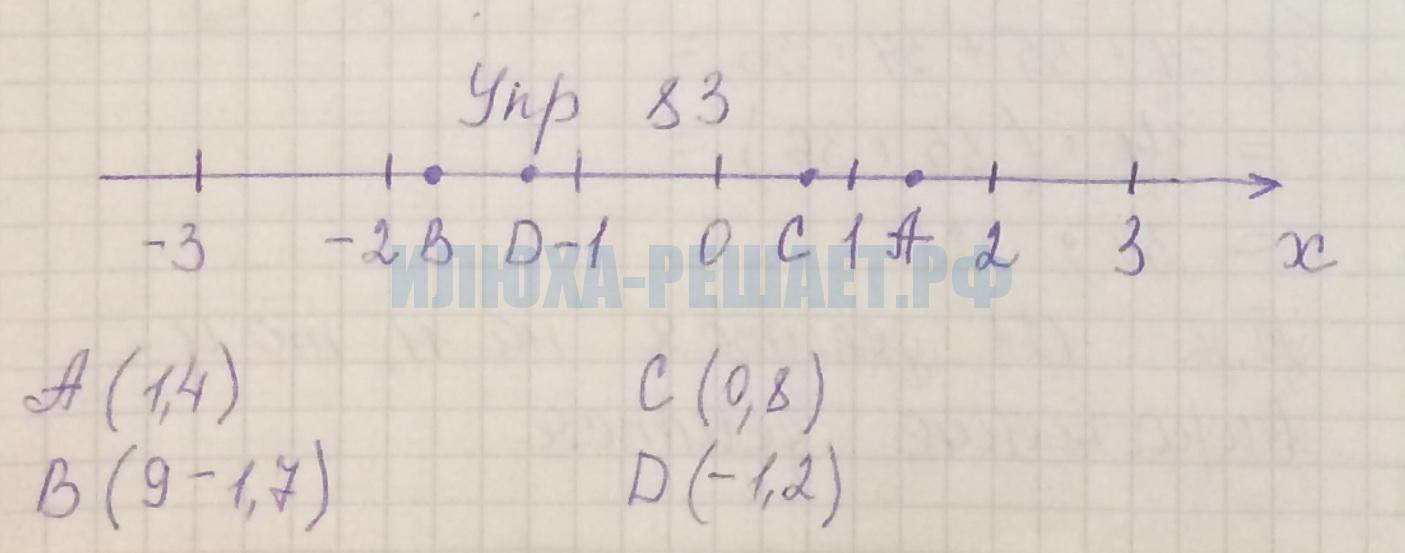 Упр 83
-3 -2 B D -1 0 C 1 A 2 3 x
ИЛЮХА-РЕШАЕТ.РФ
A (1,4) C (0,8)
B (9-1,7) D (-1,2)